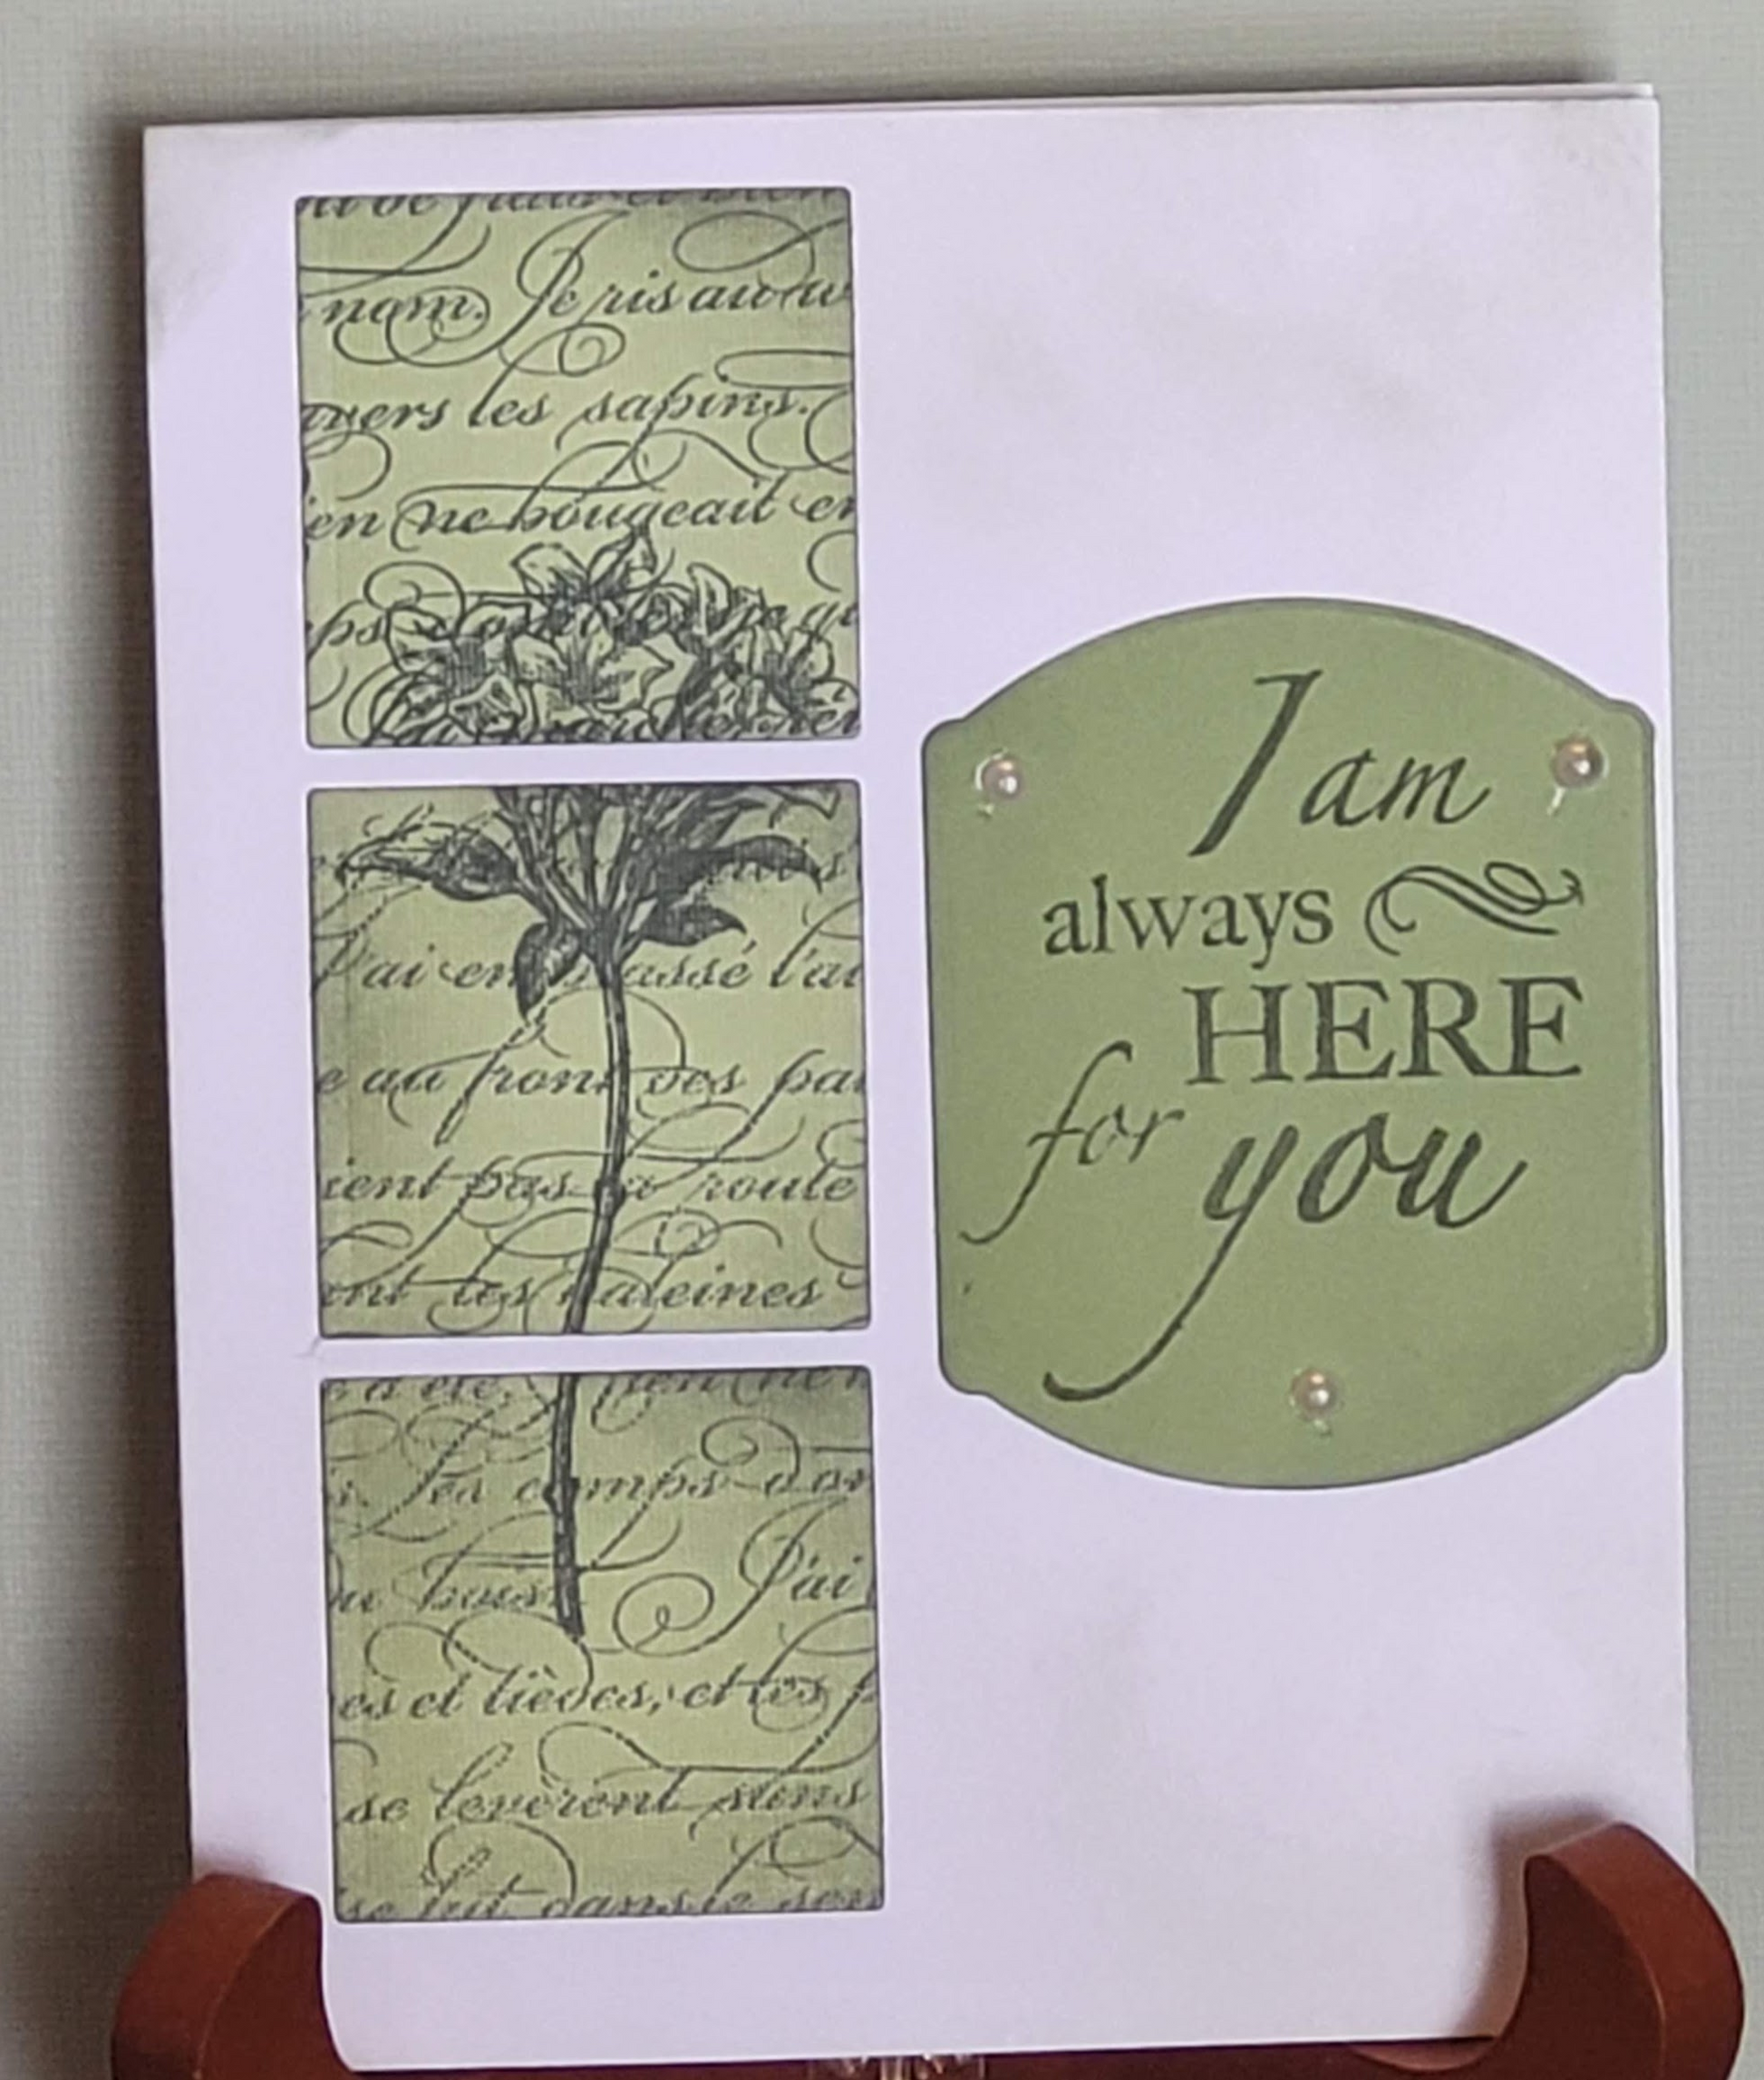 nom. Je ris au w
avers les sapins.
en ne bougeait en
J'ai embrassé l'au
e au front des pal
ient pas la route
ent les haleines
a été.
Les camps d'om
du bois. J'ai
es et tièdes, et les p
se levèrent sans
I am
always
HERE
for you